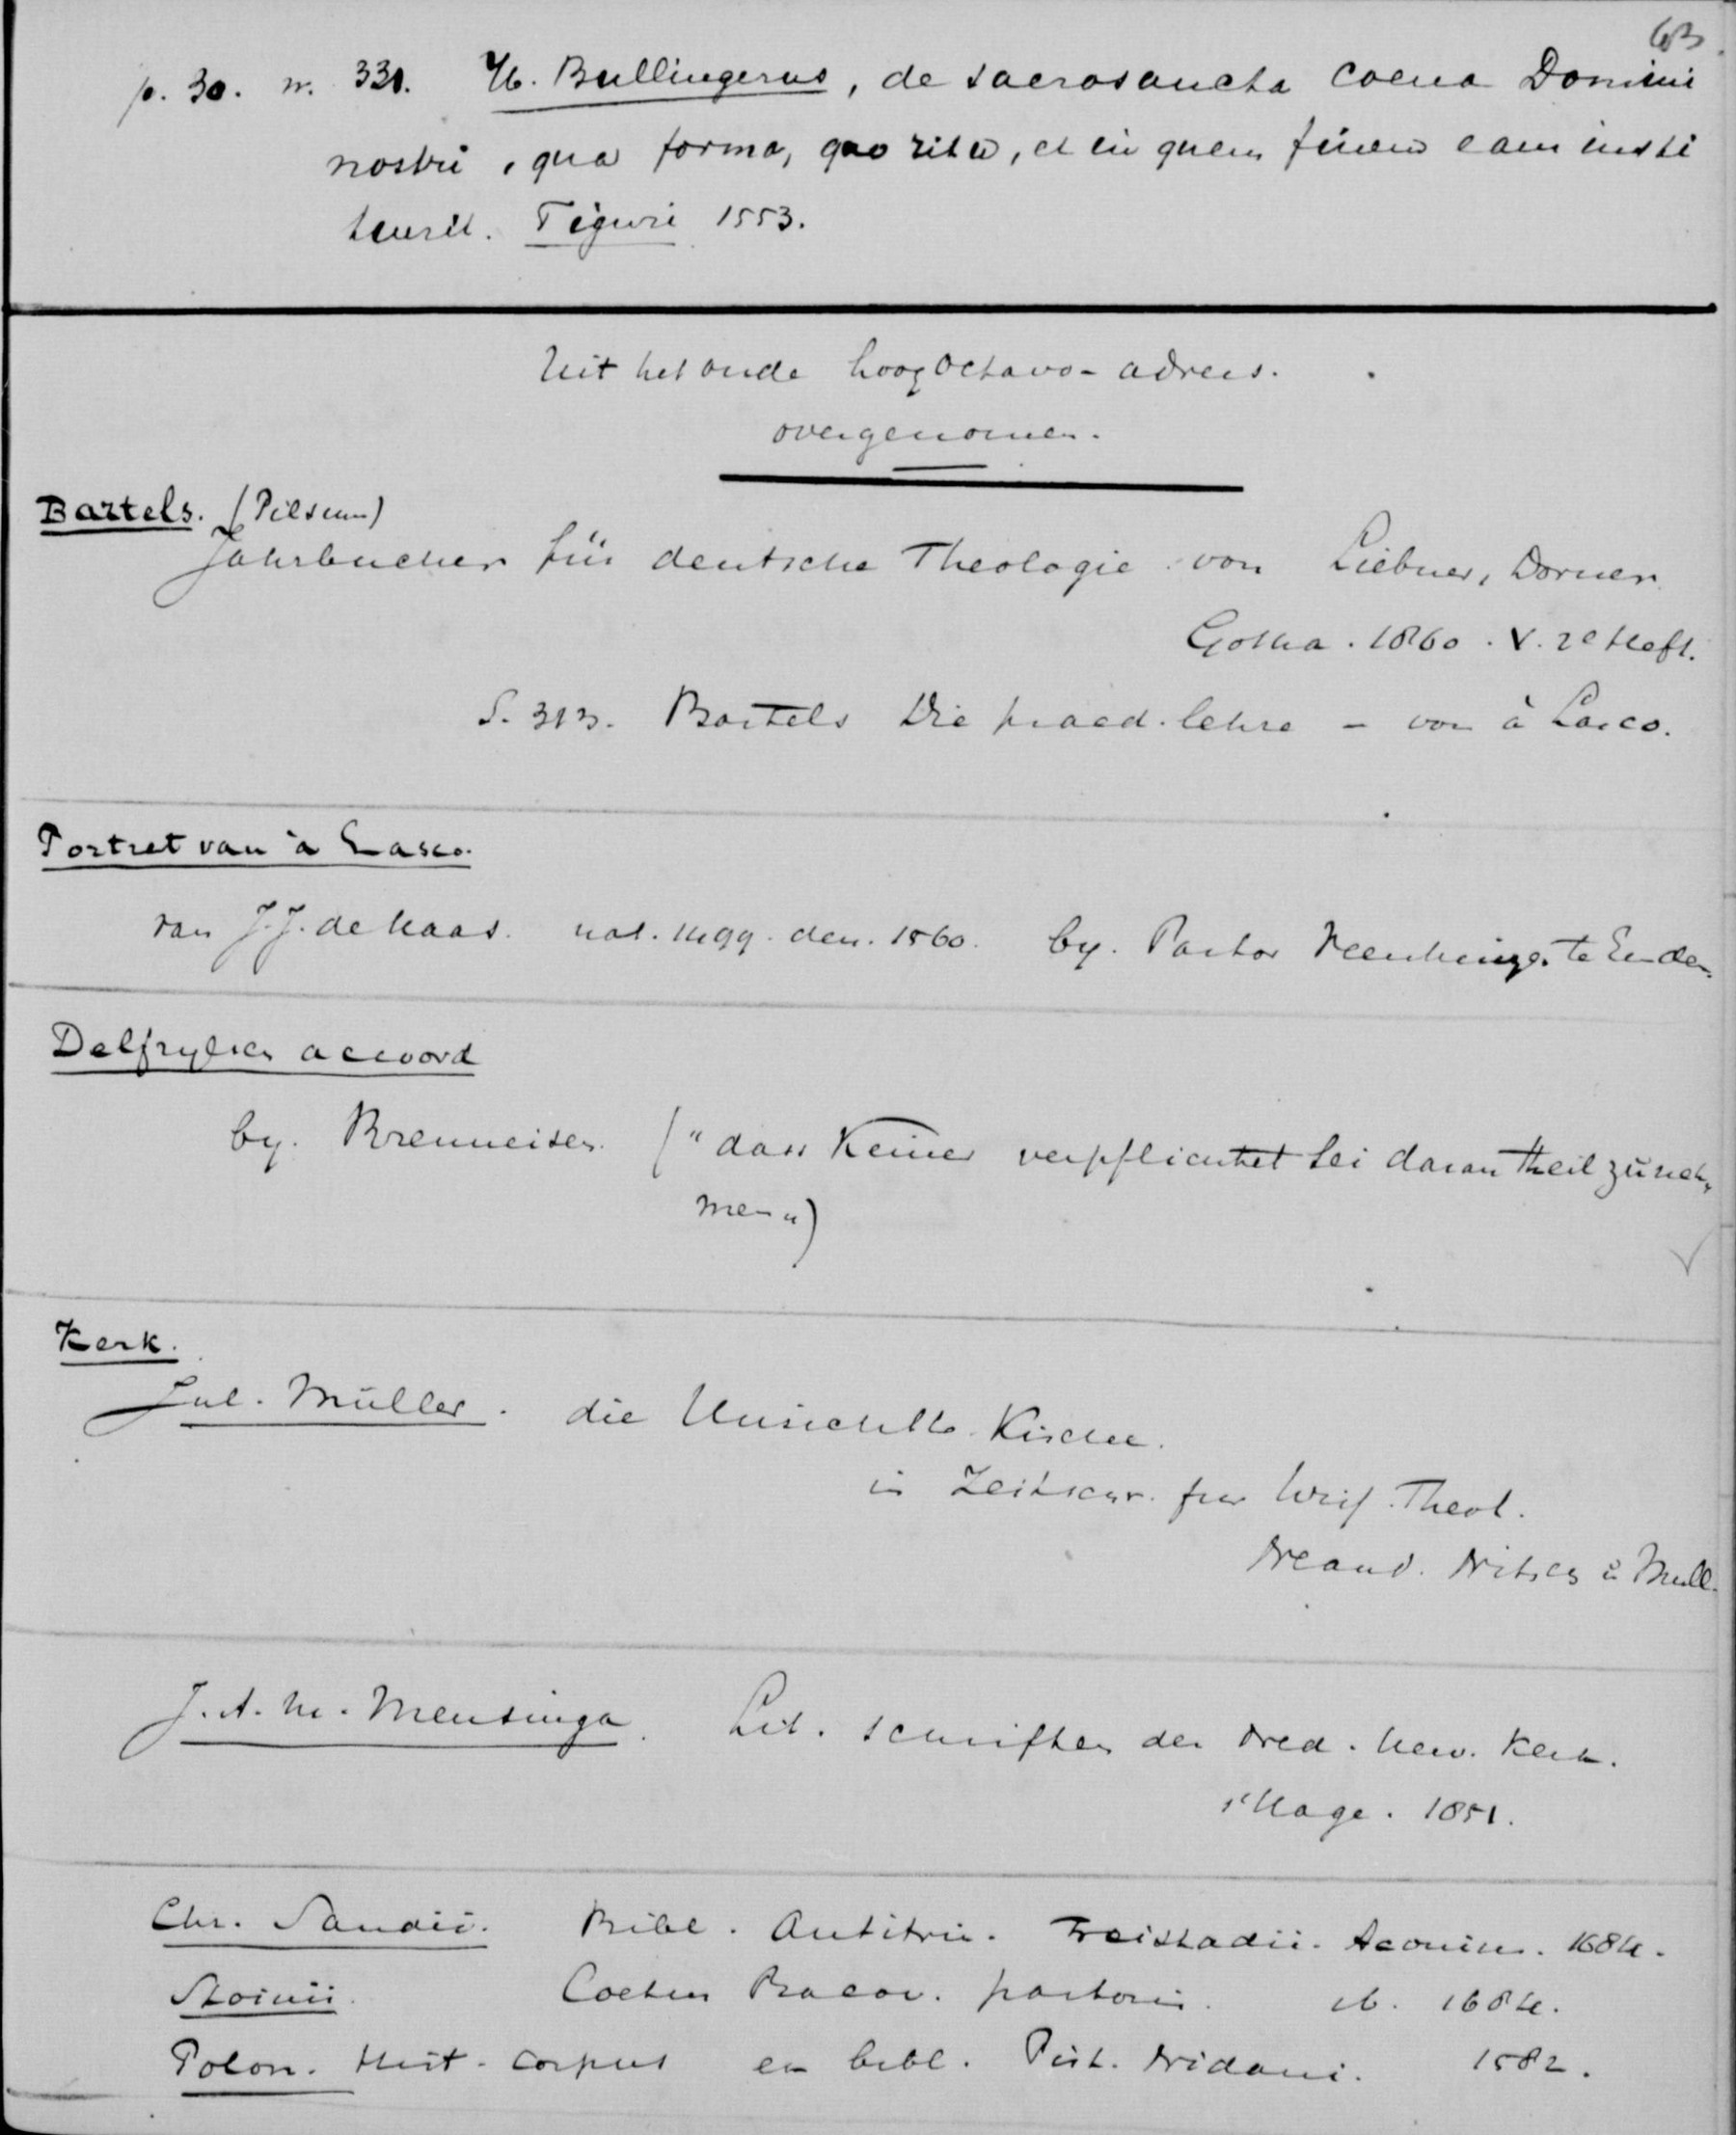 63
p. 30. n. 331. H. Bullingerus, de sacrosancta coena Domini
nostri, qua forma, quo ritu, et in quem finem eam insti
tuerit. Tiguri 1553.
Uit het oude hoog octavo- adres.
overgenomen.
Bartels. (Pilsum)
Jahrbucher für deutsche Theologie von Liebner, Dorner
Gotha. 1860. V. 2e Heft.
S. 313. Bartels Die praed. lehre - von à Lasco.
Portret van à Lasco.
van J. J. de Haas. den. 1860. by. Pastor te Emden.
Delfzylsch accoord
by. Brenneisen. ("dass Keiner verpflichtet sei daran theil zu neh-
men")
Kerk.
Jul. Müller. die Unsichtb. Kirche.
in Zeitschr. fur Theol.
Neand. Nitsch u Mull.
J. A. M. Mensinga. Lit. schriften der Ned. Herv. Kerk.
s'Hage. 1851.
Chr. Sandii. Bibl. Antitrin. Freistadii. Aconium. 1684.
Stoinii. Coetus Racov. pastoris. ib. 1684.
Polon. Hist. corpus ex bibl. Pist. Nidani. 1582.